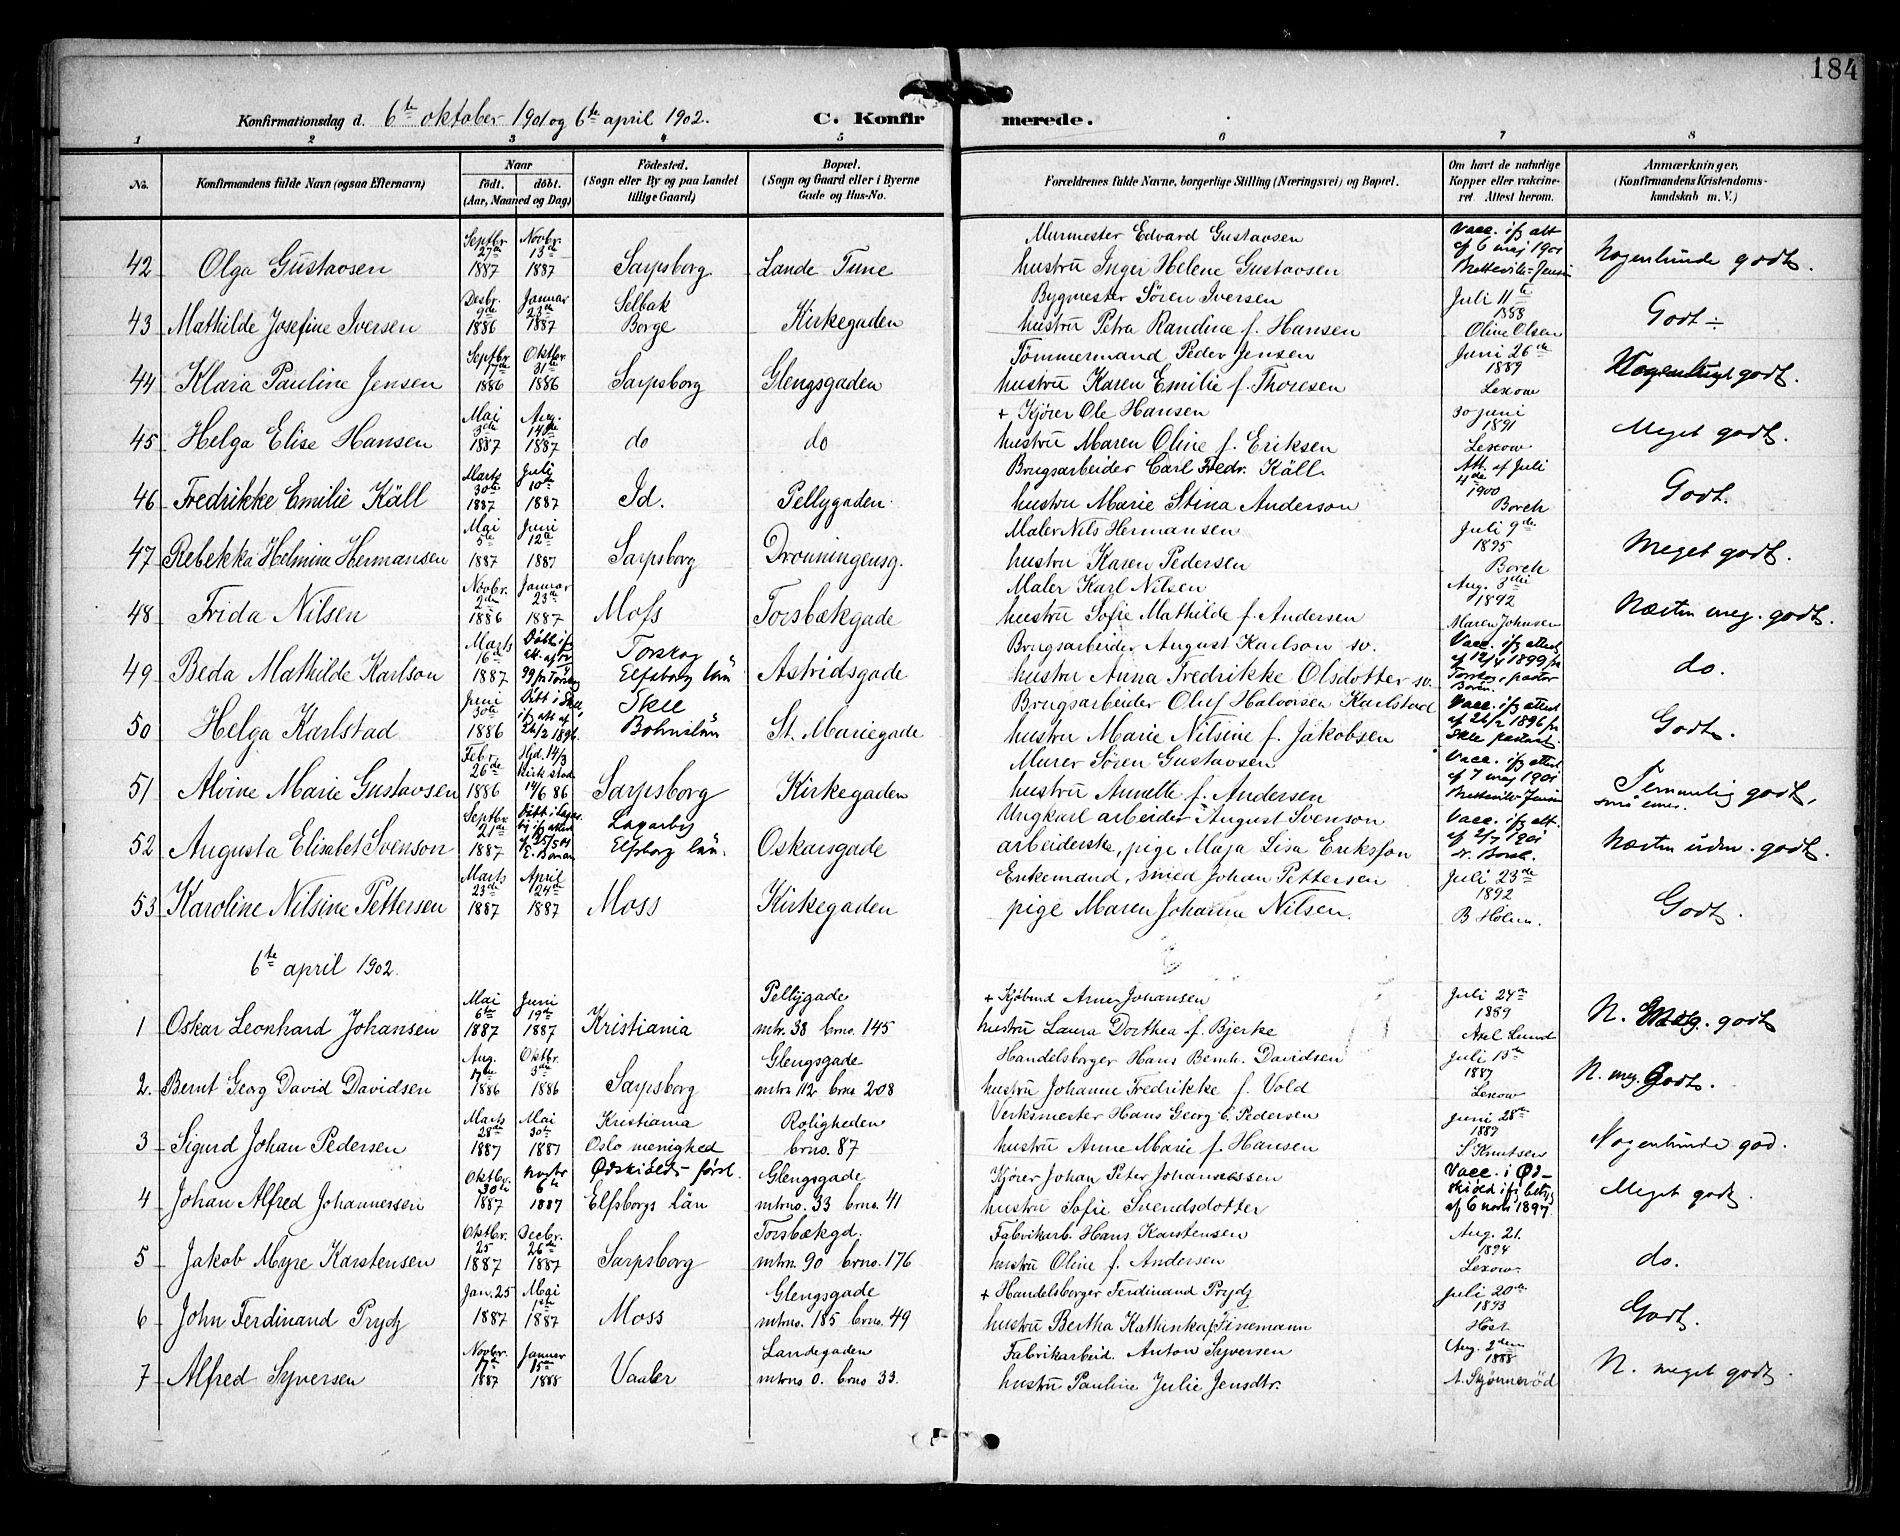 184
Konfirmationsdag d. 6te oktober 1901 og 6te april 1902. C. Konfirmerede.
1 2 3 4 5 6 7 8
No.
Konfirmandens fulde Navn (ogsaa Efternavn)
Naar
født. døbt.
(Aar, Maaned og Dag)
Fødested.
(Sogn eller By og paa Landet
tillige Gaard)
Bopæl.
(Sogn og Gaard eller i Byerne
Gade og Hus-No.
Forældrenes fulde Navne, borgerlige Stilling (Næringsvei) og Bopæl.
Om havt de naturlige
Kopper eller vakcine-
ret Attest herom.
Anmærkninger,
(Konfirmandens Kristendoms-
kundskab m. V.)
Septbr. 27de Novbr. 13de Murmester Edvard Gustavsen Vacc. ifg att. af 6 maj 1901
42 Olga Gustavsen 1887 1887 Sarpsborg Lande Tune hustru Inger Helene Gustavsen Nogenlunde godt.
Desbr. 9de Januar 23de Selbak Bygmester Søren Iversen Juli 11te
43 Mathilde Josefine Iversen 1886 1887 Borge Kirkegaden hustru Petra Randine f. Hansen Oline Olsen Godt ÷
Septbr. 17de Oktbr. 31te Tømmermand Peder Jensen Juni 26de 1889
44 Klara Pauline Jensen 1886 1886 Sarpsborg Glengsgaden hustru Karen Emilie f. Thoresen Lexow godt.
Mai 3die Aug. 14de + Kjører Ole Hansen 30 juni 1891
45 Helga Elise Hansen 1887 1887 do do hustru Maren Oline f. Eriksen Lexow Meget godt.
Marts 30te Juli 10de Brugsarbeider Carl Fredr. Käll Att. af Juli 4de 1900
46 Fredrikke Emilie Käll 1887 1887 Id. Pellygaden. hustru Marie Stina Anderson Borch Godt.
Mai 5te Juni 12te Maler Nils Hermansen Juli 9de 1895
47 Rebekka Helmine Hermansen 1887 1887 Sarpsborg Dronningensg. hustru Karen Pedersen Borch Meget godt.
Novbr. 2den Januar 23de Maler Karl Nilsen Aug. 3die 1892
48 Frida Nilsen 1886 1887 Moss Torsbækgade hustru Sofie Mathilde f. Andersen Maren Johnsen Næsten meg. godt.
Marts 16de Døbt ifg Torskog Brugsarbeider August Karlson sv. Vacc. ifg attest af 12/4 1899 fr
49 Beda Mathilde Karlson 1887 Elfsborg län Astridsgade hustru Anna Fredrikke Olsdotter sv. do.
Juni 30te Døbt i Skee ifg att af Skee Brugsarbeider Oluf Halvorsen Karlstad Vacc. ifg attest af 26/2 1896 fr
50 Helga Karlstad 1886 26/2 1896. Bohuslän St. Mariegade hustru Marie Nilsine f. Jakobsen Skee pastorat. Godt.
Febr. 26de Hjd. 14/3 Murer Søren Gustavsen Vacc. ifg attest af 7 maj 1901
51 Alvine Marie Gustavsen 1886 14/6 86 Sarpsborg Kirkegaden hustru Annette f. Andersen Temmelig godt,
Septbr. 21de Ungkarl arbeider August Svenson Vacc. ifg att. af 2/7 1901
52 Augusta Elisabet Svenson 1887 Elfsborg län. Oskarsgade arbeiderske, pige Maja Lisa Eriksson Næsten uden. godt.
Marts 23de April 24de Enkemand, smed Johan Pettersen Juli 23de 1892
53 Karoline Nilsine Pettersen 1887 1887 Moss Kirkegaden pige Maren Johanne Nilsen. B Holm. Godt.
6te april 1902.
Mai 6te Juni 19de Pellygade + Kjøbmd Arne Johansen Juli 24de 1889
1 Oskar Leonhard Johansen 1887 1887 Kristiania mtr. 38 brno. 145 hustru Laura Dorthea f. Bjerke Axel Lund N. Meg. godt
Aug. 17de Oktbr. 3die Glengsgade Handelsborger Hans Bernh. Davidsen Juli 15de 1887
2. Bernt Georg David Davidsen 1886 1886 Sarpsborg mtrn 112 brno 208 hustru Johanne Fredrikke f. Vold Lexow N. meg. Godt.
Marts 28de Mai 30te Kristiania Roligheden Verksmester Hans Georg C. Pedersen Juni 28de 1887
3 Sigurd Johan Pedersen 1887 1887 Oslo menighed brno. 87 hustru Anne Marie f. Hansen S Knutsen Nogenlunde god.
Oktbr. 30te novbr 6te Ødskiølds førsl. Glengsgade Kjører Johan Peter Johannessen Vacc. i Ød-
4 Johan Alfred Johannessen 1887 1887 Elfsborgs län mtrno. 33 brno. 41 hustru Sofie Svendsdotter skiöld ifg betyg af 6 novbr 1897 Meget godt.
Oktbr. 25 Decbr. 26de Torsbækgd. Fabrikarb. Hans Karstensen Aug. 21. 1894
5 Jakob Myre Karstensen 1887 1887 Sarpsborg mtrn. 90 brno. 176 hustru Oline f. Andersen Lexow. do.
Jan. 25 Mai 1ste Glengsgade + Handelsborger Ferdinand Prydz Juli 20de 1893
6 John Ferdinand Prydz 1887 1887 Moss mtrno. 185 brno. 49 hustru Bertha Kathinka f. Høst Godt.
Novbr. 17de Januar 15de Landegaden Fabrikarbeid. Anton Syversen Aug. 2den 1888
7 Alfred Syversen 1887 1888 Vaaler mtrno 0. brno 33. hustru Pauline Julie Jensdtr. A. Skjønnerød N. meget godt.